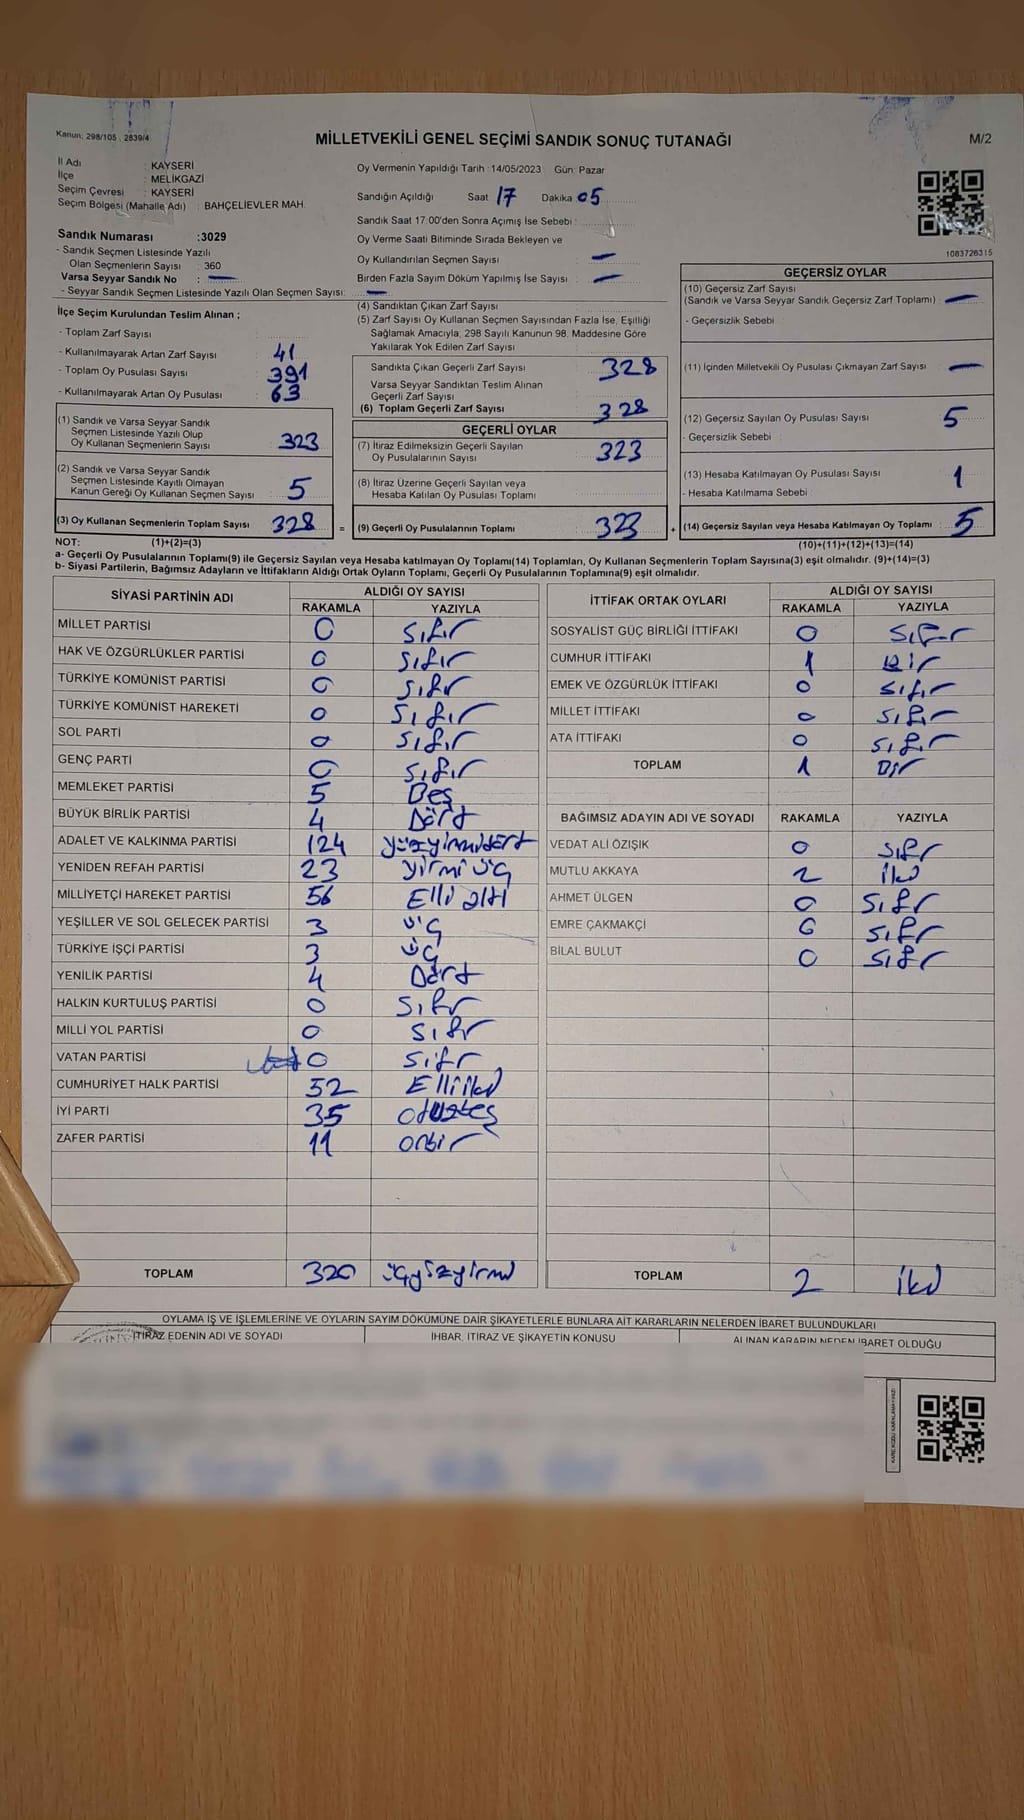 Kanun: 298/105 , 2839/4
MİLLETVEKİLİ GENEL SEÇİMİ SANDIK SONUÇ TUTANAĞI
M/2
İl Adı : KAYSERİ
İlçe : MELİKGAZİ
Seçim Çevresi : KAYSERİ
Seçim Bölgesi (Mahalle Adı) : BAHÇELİEVLER MAH.
Sandık Numarası :3029
- Sandık Seçmen Listesinde Yazılı
Olan Seçmenlerin Sayısı : 360
Varsa Seyyar Sandık No : —
- Seyyar Sandık Seçmen Listesinde Yazılı Olan Seçmen Sayısı: —
İlçe Seçim Kurulundan Teslim Alınan ;
- Toplam Zarf Sayısı
- Kullanılmayarak Artan Zarf Sayısı : 41
- Toplam Oy Pusulası Sayısı : 391
- Kullanılmayarak Artan Oy Pusulası : 63
(1) Sandık ve Varsa Seyyar Sandık
Seçmen Listesinde Yazılı Olup
Oy Kullanan Seçmenlerin Sayısı : 323
(2) Sandık ve Varsa Seyyar Sandık
Seçmen Listesinde Kayıtlı Olmayan
Kanun Gereği Oy Kullanan Seçmen Sayısı : 5
(3) Oy Kullanan Seçmenlerin Toplam Sayısı : 328 =
Oy Vermenin Yapıldığı Tarih : 14/05/2023 Gün: Pazar
Sandığın Açıldığı Saat 17 Dakika 05
Sandık Saat 17:00'den Sonra Açımış İse Sebebi :
Oy Verme Saati Bitiminde Sırada Bekleyen ve
Oy Kullandırılan Seçmen Sayısı : —
Birden Fazla Sayım Döküm Yapılmış İse Sayısı : —
(4) Sandıktan Çıkan Zarf Sayısı :
(5) Zarf Sayısı Oy Kullanan Seçmen Sayısından Fazla İse, Eşitliği
Sağlamak Amacıyla; 298 Sayılı Kanunun 98. Maddesine Göre
Yakılarak Yok Edilen Zarf Sayısı :
Sandıkta Çıkan Geçerli Zarf Sayısı : 328
Varsa Seyyar Sandıktan Teslim Alınan
Geçerli Zarf Sayısı :
(6) Toplam Geçerli Zarf Sayısı : 328
GEÇERLİ OYLAR
(7) İtiraz Edilmeksizin Geçerli Sayılan
Oy Pusulalarının Sayısı : 323
(8) İtiraz Üzerine Geçerli Sayılan veya
Hesaba Katılan Oy Pusulası Toplamı :
(9) Geçerli Oy Pusulalarının Toplamı : 323 +
1083726315
GEÇERSİZ OYLAR
(10) Geçersiz Zarf Sayısı
(Sandık ve Varsa Seyyar Sandık Geçersiz Zarf Toplamı) : —
- Geçersizlik Sebebi :
(11) İçinden Milletvekili Oy Pusulası Çıkmayan Zarf Sayısı : —
(12) Geçersiz Sayılan Oy Pusulası Sayısı : 5
- Geçersizlik Sebebi :
(13) Hesaba Katılmayan Oy Pusulası Sayısı : 1
- Hesaba Katılmama Sebebi :
(14) Geçersiz Sayılan veya Hesaba Katılmayan Oy Toplamı : 5
NOT: (1)+(2)=(3)
(10)+(11)+(12)+(13)=(14)
a- Geçerli Oy Pusulalarının Toplamı(9) ile Geçersiz Sayılan veya Hesaba katılmayan Oy Toplamı(14) Toplamları, Oy Kullanan Seçmenlerin Toplam Sayısına(3) eşit olmalıdır. (9)+(14)=(3)
b- Siyasi Partilerin, Bağımsız Adayların ve İttifakların Aldığı Ortak Oyların Toplamı, Geçerli Oy Pusulalarının Toplamına(9) eşit olmalıdır.
SİYASİ PARTİNİN ADI
ALDIĞI OY SAYISI
RAKAMLA YAZIYLA
MİLLET PARTİSİ 0 sıfır
HAK VE ÖZGÜRLÜKLER PARTİSİ 0 sıfır
TÜRKİYE KOMÜNİST PARTİSİ 0 sıfır
TÜRKİYE KOMÜNİST HAREKETİ 0 sıfır
SOL PARTİ 0 sıfır
GENÇ PARTİ 0 sıfır
MEMLEKET PARTİSİ 5 Beş
BÜYÜK BİRLİK PARTİSİ 4 Dört
ADALET VE KALKINMA PARTİSİ 124 yüzyirmidört
YENİDEN REFAH PARTİSİ 23 yirmi üç
MİLLİYETÇİ HAREKET PARTİSİ 56 Elli altı
YEŞİLLER VE SOL GELECEK PARTİSİ 3 üç
TÜRKİYE İŞÇİ PARTİSİ 3 üç
YENİLİK PARTİSİ 4 Dört
HALKIN KURTULUŞ PARTİSİ 0 sıfır
MİLLİ YOL PARTİSİ 0 sıfır
VATAN PARTİSİ 0 sıfır
CUMHURİYET HALK PARTİSİ 52 Elliiki
İYİ PARTİ 35 otuzbeş
ZAFER PARTİSİ 11 onbir
TOPLAM 320 üçyüzyirmi
İTTİFAK ORTAK OYLARI
ALDIĞI OY SAYISI
RAKAMLA YAZIYLA
SOSYALİST GÜÇ BİRLİĞİ İTTİFAKI 0 sıfır
CUMHUR İTTİFAKI 1 Bir
EMEK VE ÖZGÜRLÜK İTTİFAKI 0 sıfır
MİLLET İTTİFAKI 0 sıfır
ATA İTTİFAKI 0 sıfır
TOPLAM 1 Bir
BAĞIMSIZ ADAYIN ADI VE SOYADI RAKAMLA YAZIYLA
VEDAT ALİ ÖZIŞIK 0 sıfır
MUTLU AKKAYA 2 iki
AHMET ÜLGEN 0 sıfır
EMRE ÇAKMAKÇİ 0 sıfır
BİLAL BULUT 0 sıfır
TOPLAM 2 iki
OYLAMA İŞ VE İŞLEMLERİNE VE OYLARIN SAYIM DÖKÜMÜNE DAİR ŞİKAYETLERLE BUNLARA AİT KARARLARIN NELERDEN İBARET BULUNDUKLARI
İTİRAZ EDENİN ADI VE SOYADI
İHBAR, İTİRAZ VE ŞİKAYETİN KONUSU
ALINAN KARARIN NEDEN İBARET OLDUĞU